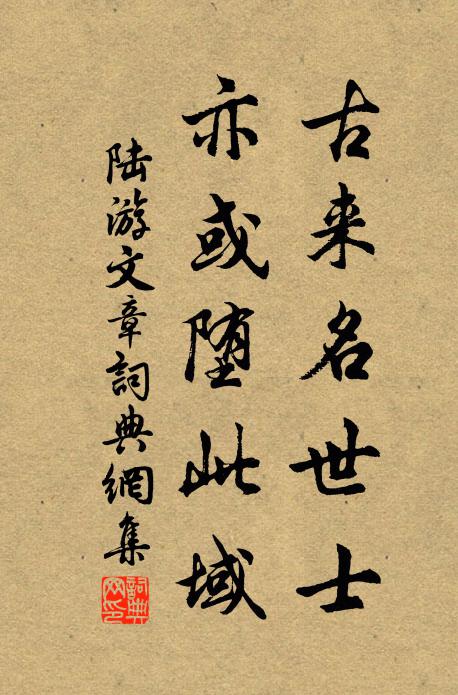 古来名世士
亦或堕此域
陆游文章詞典網集
詞典网印